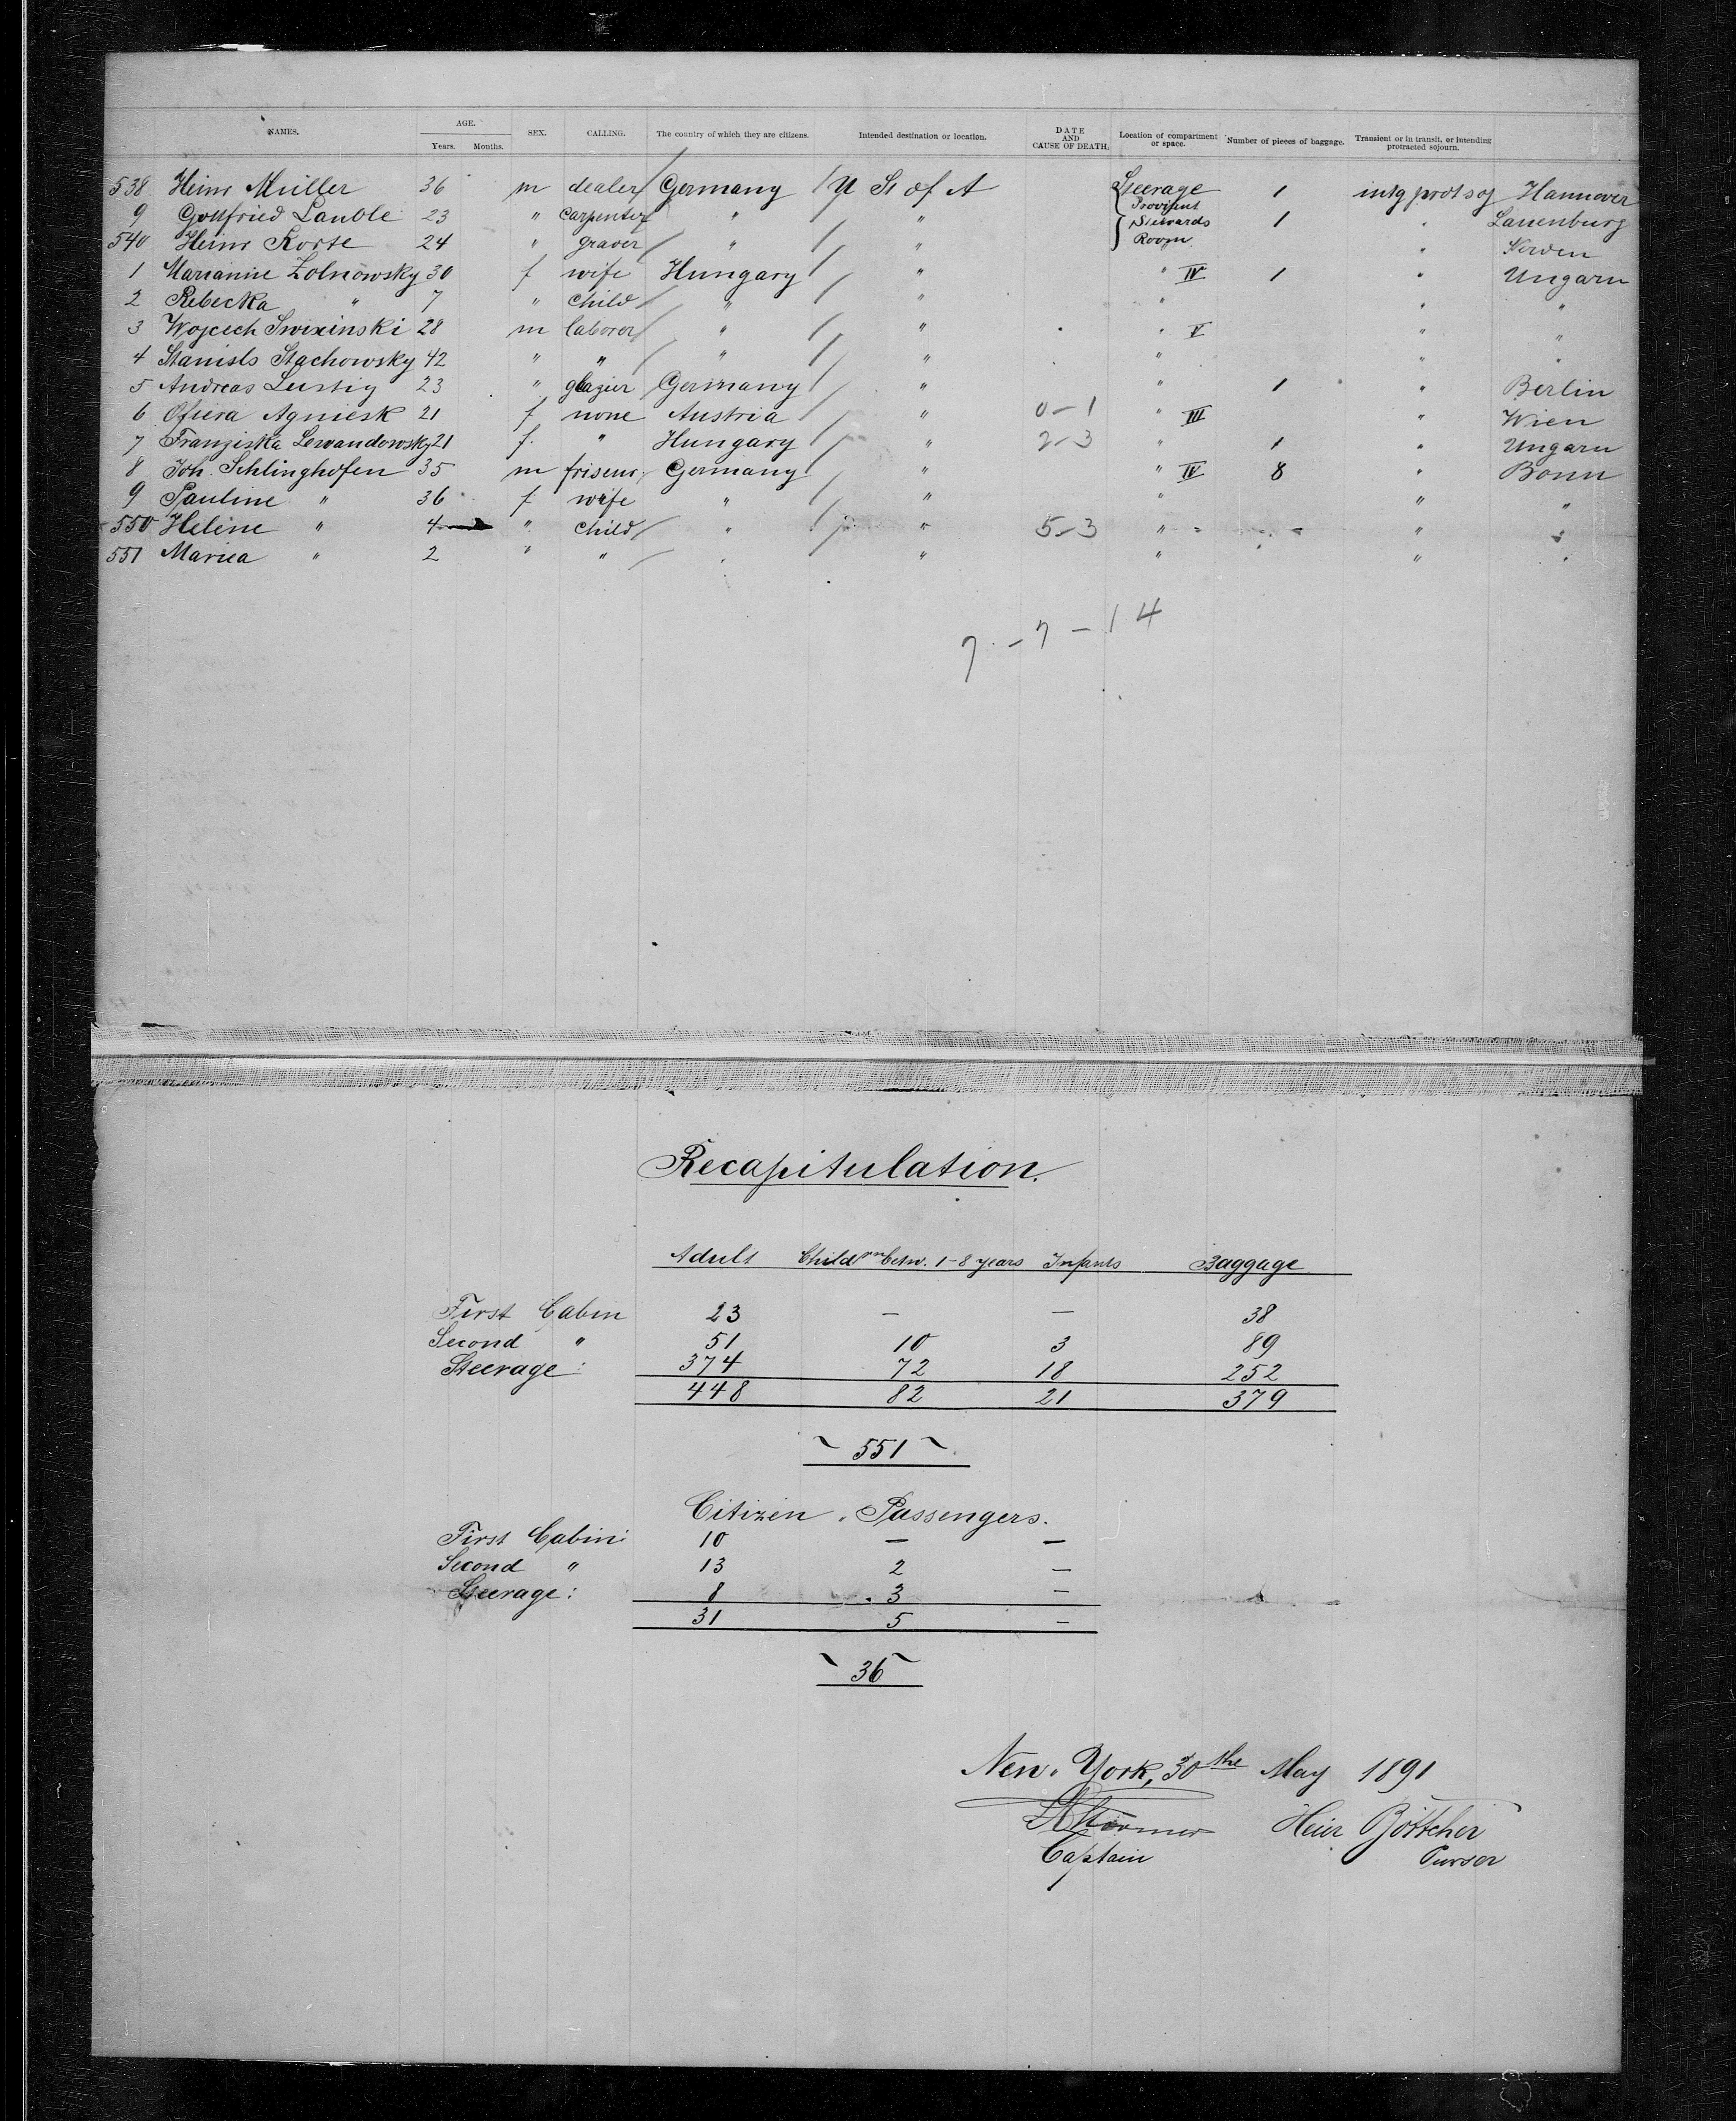 NAMES. AGE. Years. Months. SEX. CALLING. The country of which they are citizens. Intended destination or location. DATE AND CAUSE OF DEATH. Location of compartment or space. Number of pieces of baggage. Transient or in transit, or intending protracted sojourn.
538 Heinr Müller 36 m dealer Germany U St of A Steerage 1 intg prot soj Hannover
9 Gottfried Lauble 23 " carpenter " " Proviant Stewards 1 " Lauenburg
540 Heinr Korte 24 " graver " " Room "
1 Marianne Zolnowsky 30 f wife Hungary " " IV 1 " Ungarn
2 Rebecka " 7 " child " " " " "
3 Wojcech Swixinski 28 m laborer " " " V " "
4 Stanisls Stachowsky 42 " " " " " " "
5 Andreas Lustig 23 " glazier Germany " " 1 " Berlin
6 Ofiera Agniesk 21 f none Austria " 0-1 " III " Wien
7 Franziska Lewandowsky 21 f. " Hungary " 2-3 " 1 " Ungarn
8 Joh. Schlinghofen 35 m friseur Germany " " IV 8 " Bonn
9 Pauline " 36 f wife " " " " "
550 Helene " 4 " child " " 5-3 " " "
551 Mariea " 2 " " " " " " "
7-7-14
Recapitulation.
Adult Childrn betw. 1-8 years Infants Baggage
First Cabin 23 — — 38
Second " 51 10 3 89
Steerage : 374 72 18 252
448 82 21 379
~ 551 ~
Citizen Passengers.
First Cabin: 10 — —
Second " 13 2 —
Steerage : 8 3 —
31 5 —
~ 36 ~
New-York, 30the May 1891
Störmer Heinr Böttcher
Captain Purser